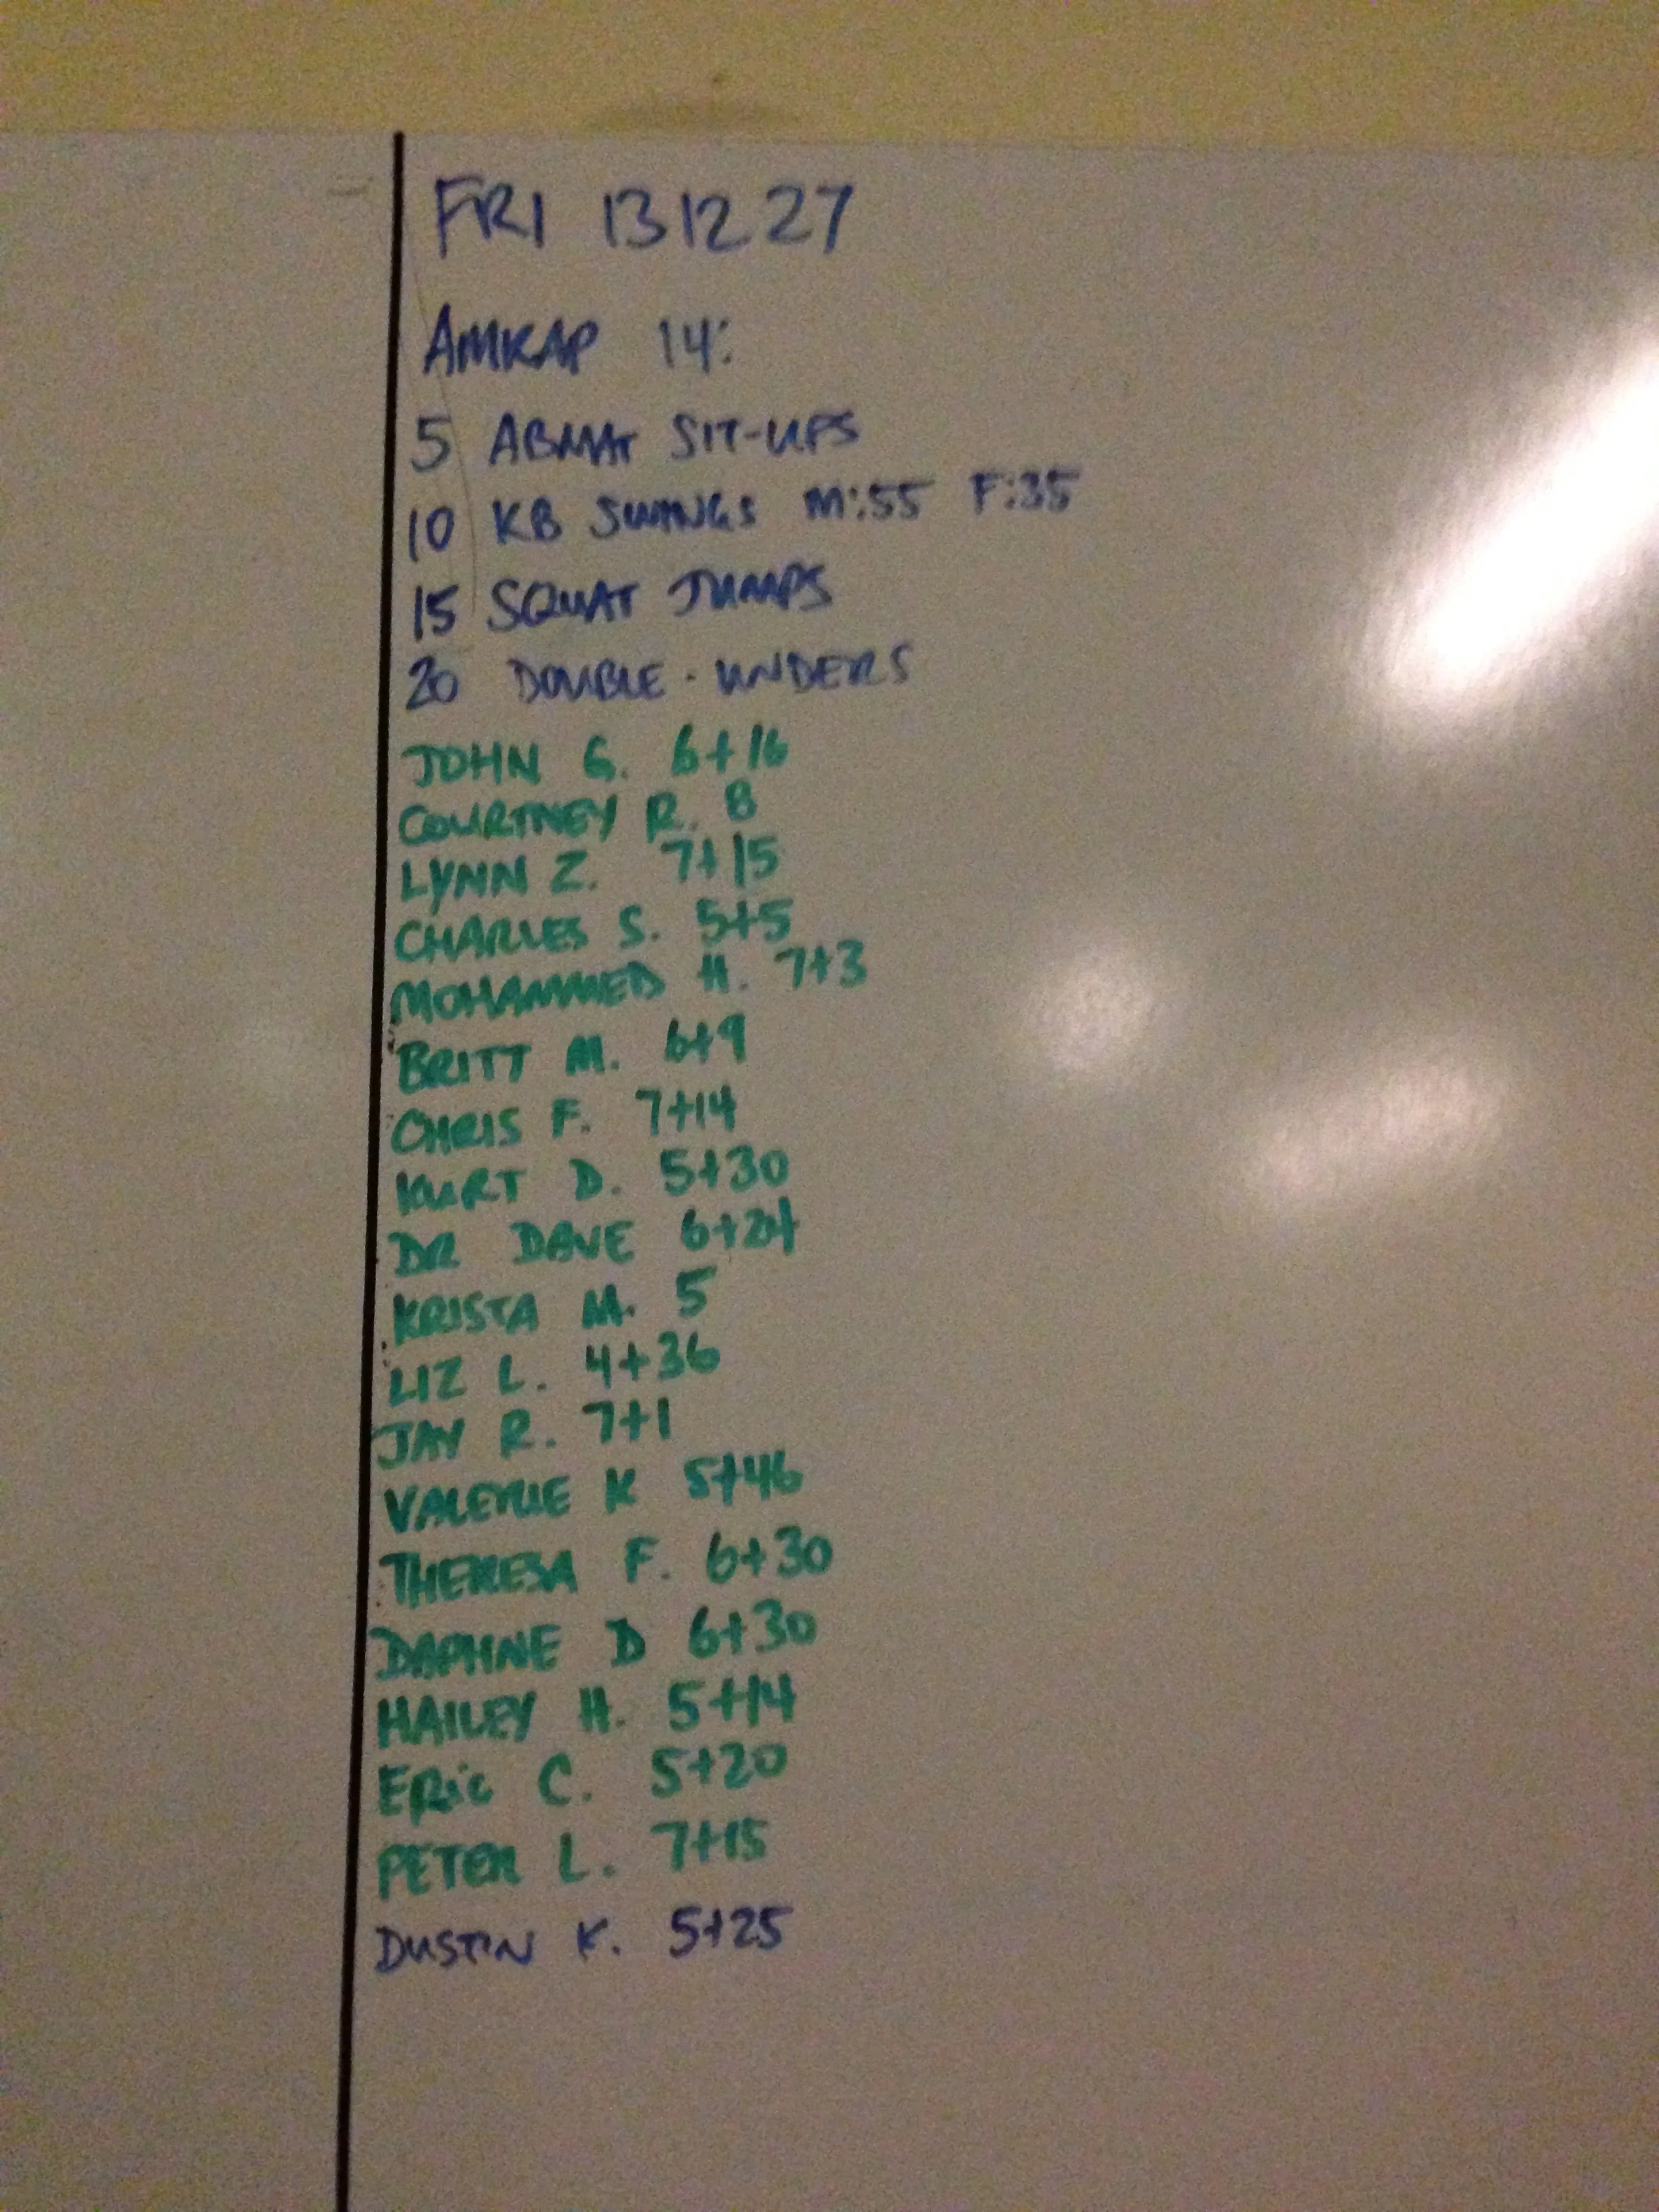 FRI 131227
AMRAP 14:
5 ABMAT SIT-UPS
10 KB SWINGS M:55 F:35
15 SQUAT JUMPS
20 DOUBLE-UNDERS
JOHN G. 6+16
COURTNEY R. 8
LYNN Z. 7+15
CHARLES S. 5+5
MOHAMMED H. 7+3
BRITT M. 6+9
CHRIS F. 7+14
KURT D. 5+30
DR DAVE 6+24
KRISTA M. 5
LIZ L. 4+36
JAY R. 7+1
VALERIE K 5+46
THERESA F. 6+30
DAPHNE D 6+30
HAILEY H. 5+14
ERIC C. 5+20
PETER L. 7+15
DUSTIN K. 5+25